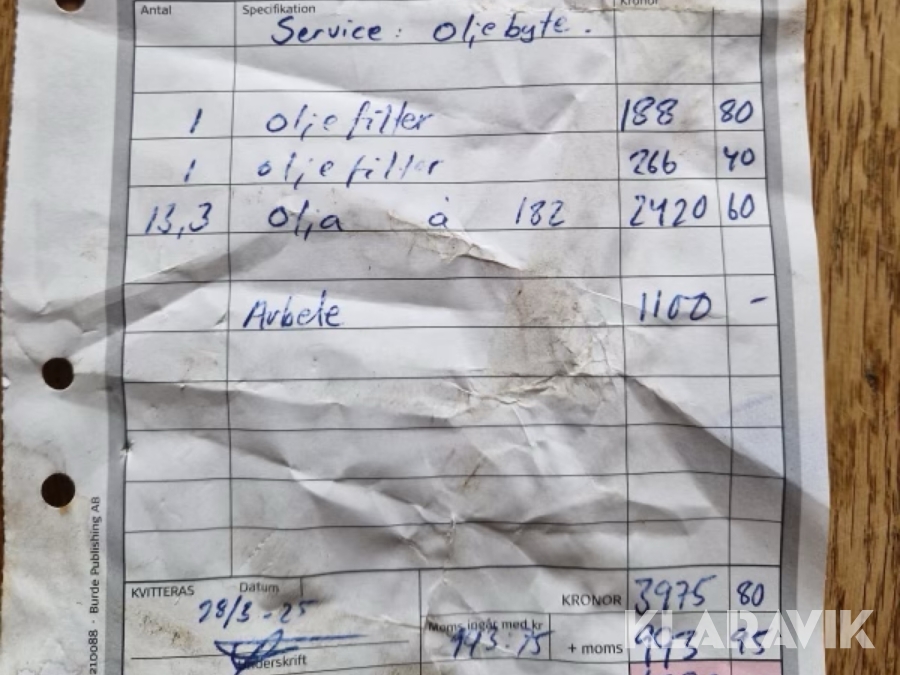 Antal Specifikation Kronor
Service: Oljebyte.
1 oljefilter 188 80
1 oljefilter 266 40
13,3 Olja à 182 2420 60
Arbete 1100 -
KVITTERAS Datum KRONOR 3975 80
28/3-25
Moms ingår med kr 993:75 + moms 993 95
Underskrift
210088 · Burde Publishing AB
KLARAVIK